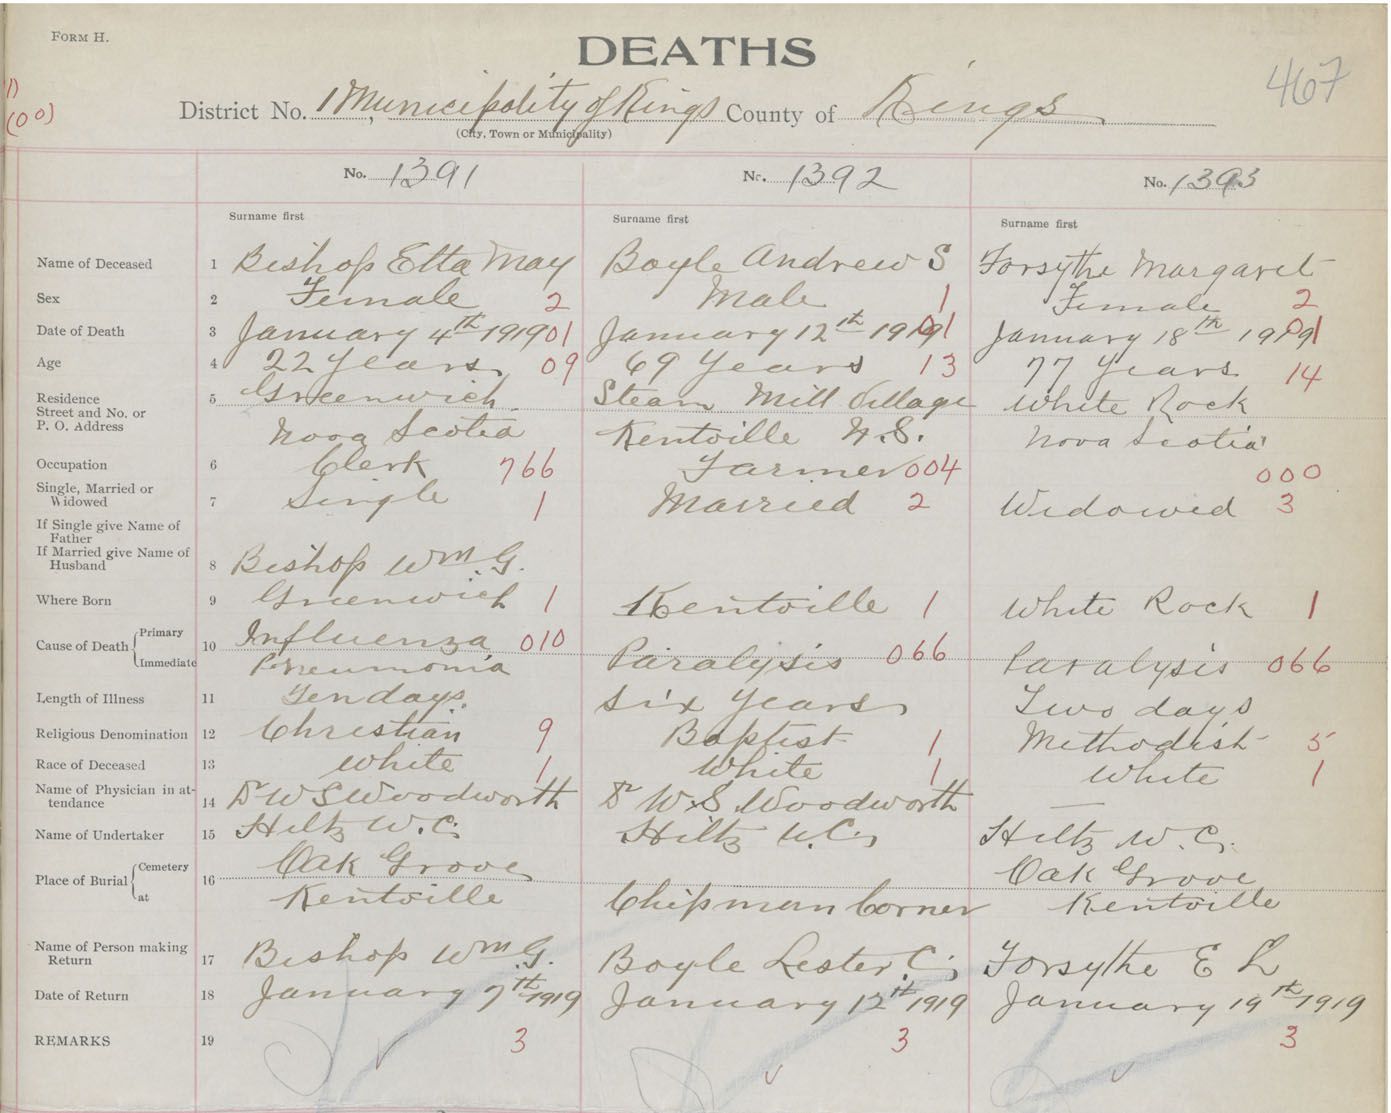 FORM H.
DEATHS
467
1)
(00)
District No. 1 Municipality of Kings County of Kings
(City, Town or Municipality)
No. 1391 No. 1392 No. 1393
Surname first Surname first Surname first
Name of Deceased 1 Bishop Etta May Boyle Andrew S Forsythe Margaret
Sex 2 Female 2 Male 1 Female 2
Date of Death 3 January 4th 1919 01 January 12th 1919 01 January 18th 1919 01
Age 4 22 Years 09 69 Years 13 77 Years 14
Residence 5 Greenwich Steam Mill Village White Rock
Street and No. or
P. O. Address Nova Scotia Kentville N.S. Nova Scotia
Occupation 6 Clerk 766 Farmer 004 000
Single, Married or
Widowed 7 Single 1 Married 2 Widowed 3
If Single give Name of
Father
If Married give Name of
Husband 8 Bishop Wm. G.
Where Born 9 Greenwich 1 Kentville 1 White Rock 1
Cause of Death { Primary 10 Influenza 010
Immediate Pneumonia Paralysis 066 Paralysis 066
Length of Illness 11 Ten days. Six Years Two days
Religious Denomination 12 Christian 9 Baptist 1 Methodist 5
Race of Deceased 13 White 1 White 1 White 1
Name of Physician in at-
tendance 14 Dr W S Woodworth Dr W. S. Woodworth —
Name of Undertaker 15 Hiltz W. C. Hiltz W. C. Hiltz W. C.
Place of Burial { Cemetery 16 Oak Grove Oak Grove
at Kentville Chipman Corner Kentville
Name of Person making
Return 17 Bishop Wm. G. Boyle Lester C. Forsythe E L
Date of Return 18 January 7th 1919 January 12th 1919 January 19th 1919
REMARKS 19 3 3 3